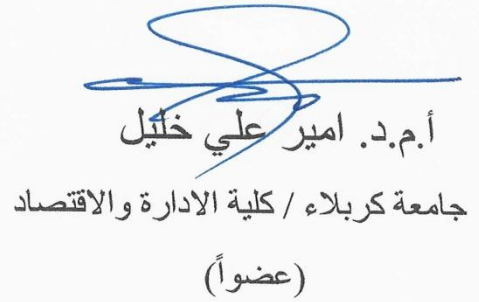 أ.م.د. امير علي خليل
جامعة كربلاء / كلية الادارة والاقتصاد
(عضواً)